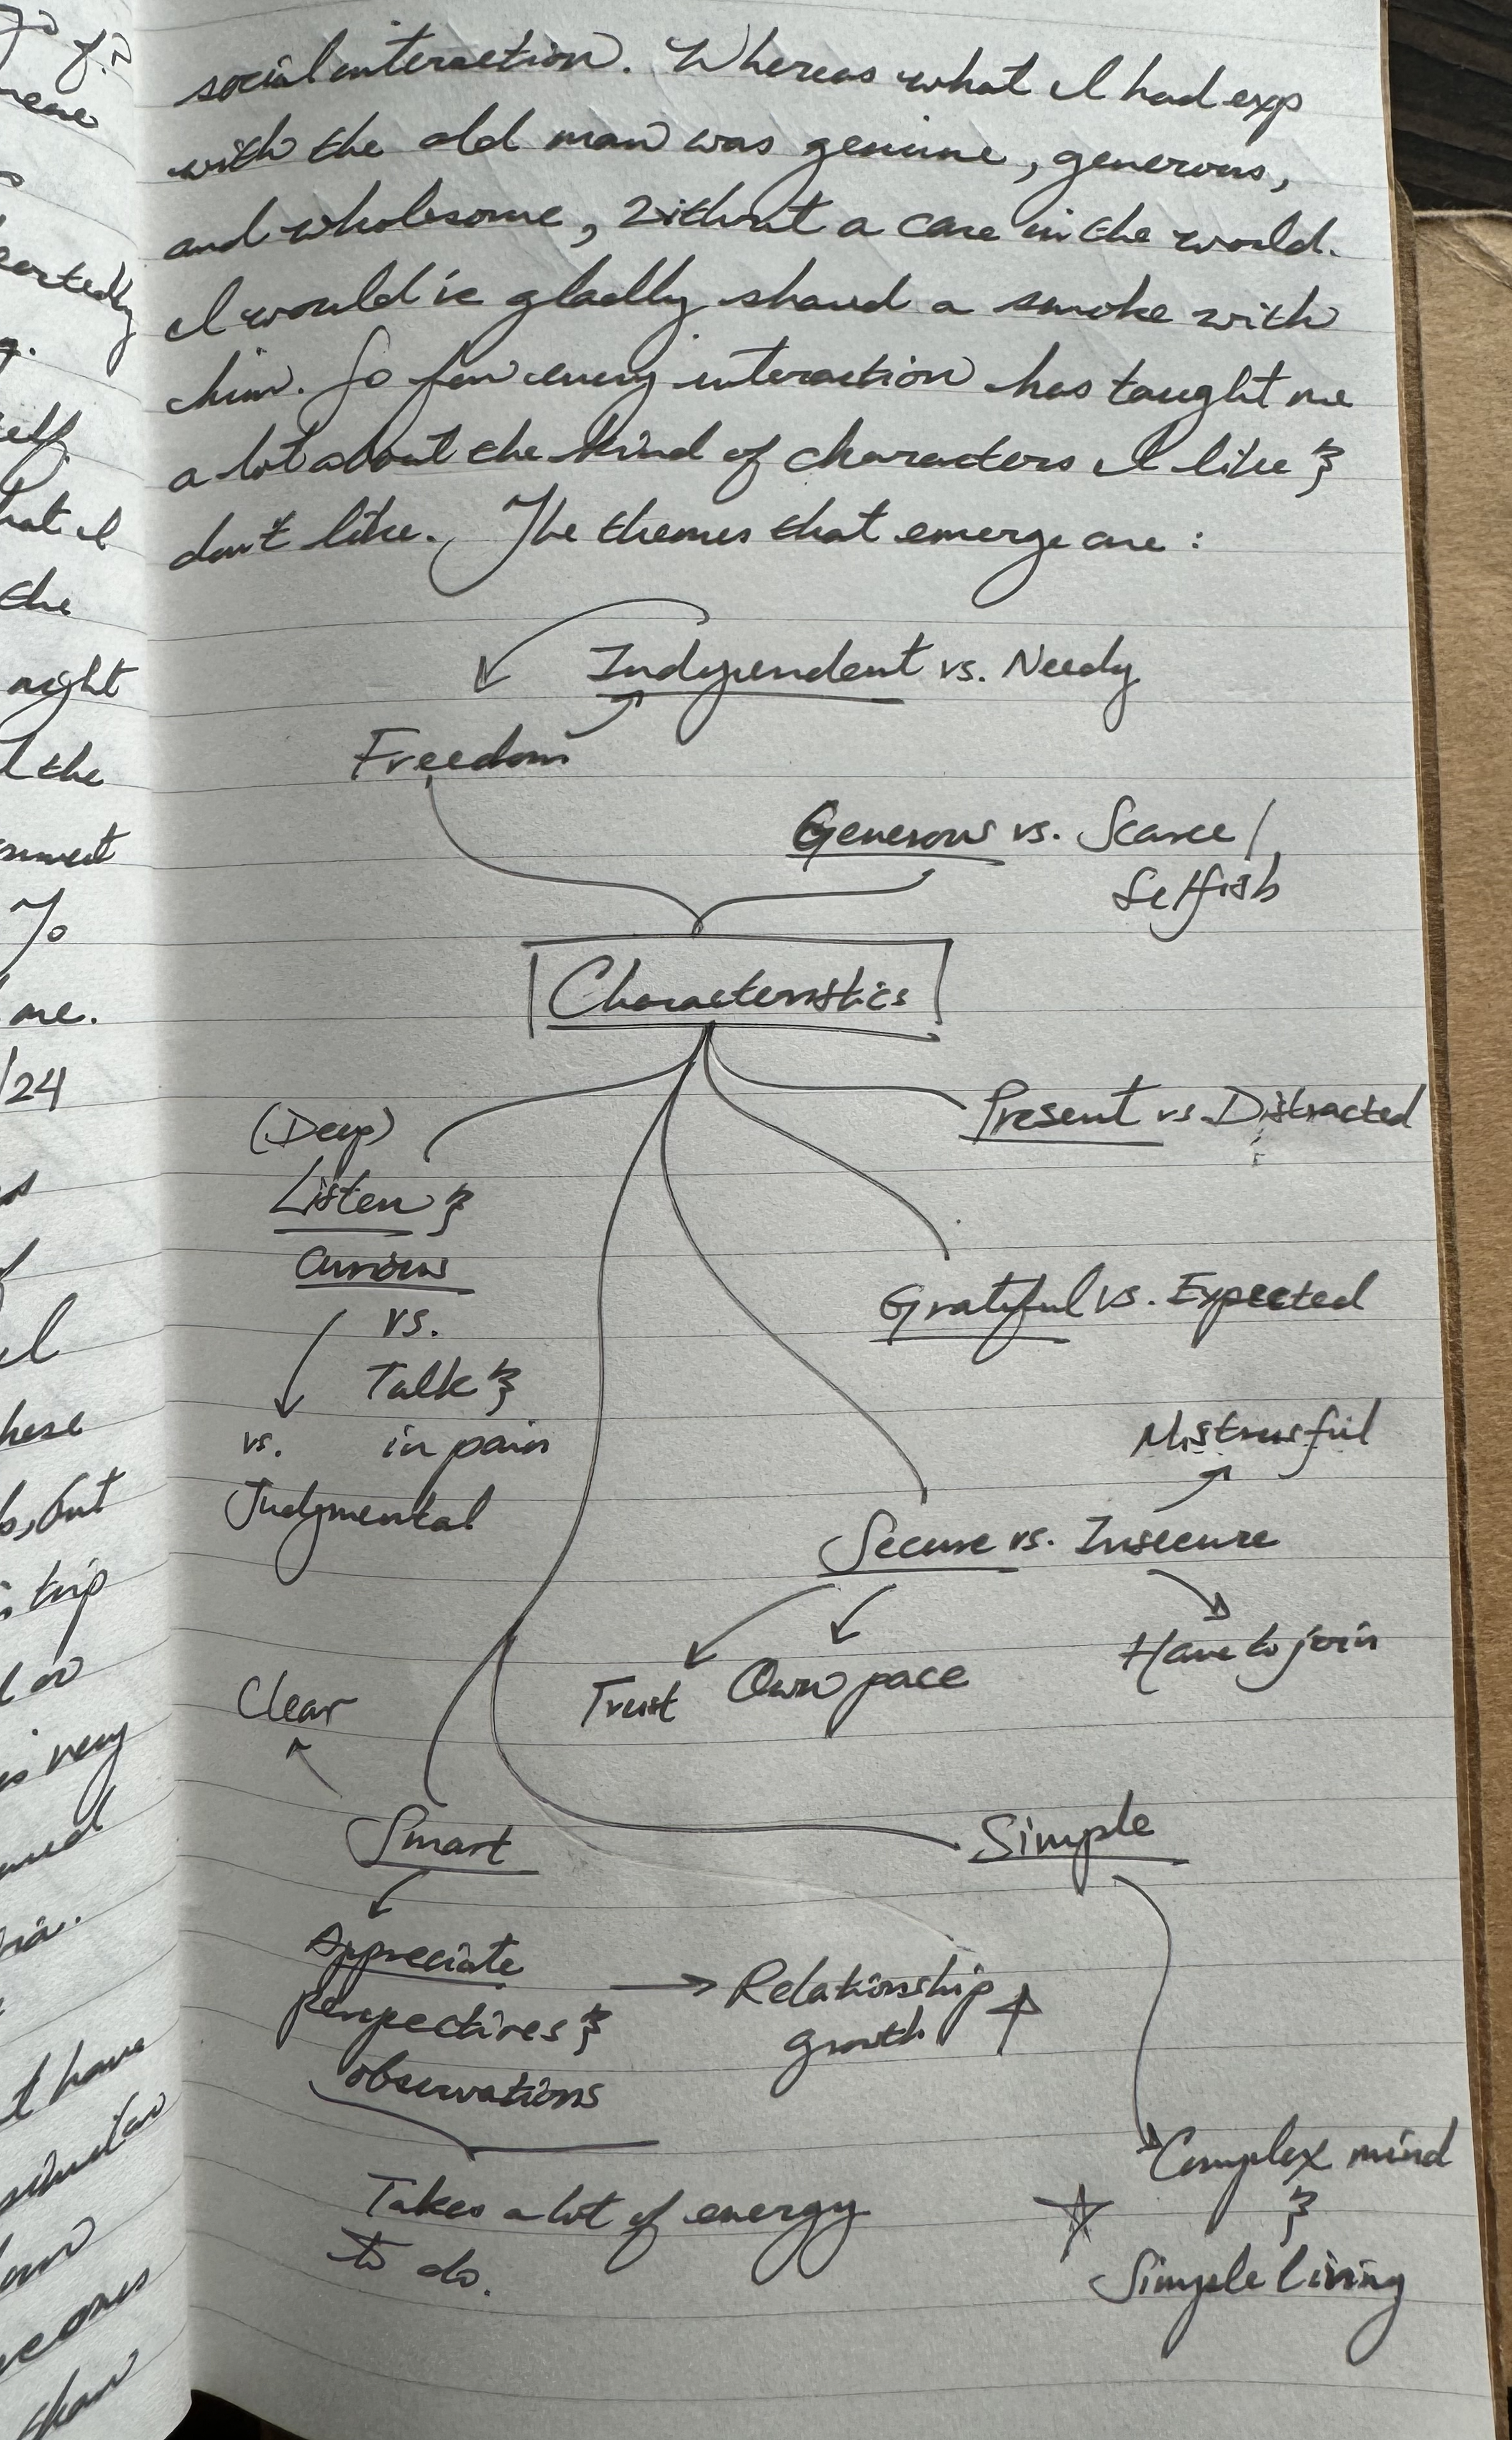 social interaction. Whereas what I had exp
with the old man was genuine, generous,
and wholesome, without a care in the world.
I would've gladly shared a smoke with
him. So far every interaction has taught me
a lot about the kind of characters I like &
don't like. The themes that emerge are:
Independent vs. Needy
Freedom
Generous vs. Scarce/
Selfish
Characteristics
Present vs. Distracted
(Deep)
Listen &
Curious
vs.
Talk &
in pain
vs.
Judgmental
Grateful vs. Expected
Mistrusful
Secure vs. Insecure
Have to join
Trust
Own pace
Clear
Smart
Simple
Appreciate
perspectives &
observations
Relationship
growth
Takes a lot of energy
to do.
Complex mind
&
Simple living
the
night
the
%
me.
/24
but
trip
very
t have